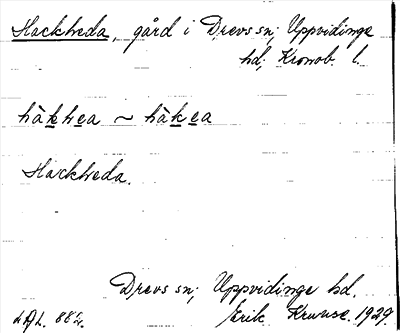 Hackheda, gård i Drevs sn; Uppvidinge
hd; Kronob. l.
hàkhea ~ hàkea
Hackheda.
Drevs sn; Uppvidinge hd.
LAL. 882. Erik Kruuse. 1929.